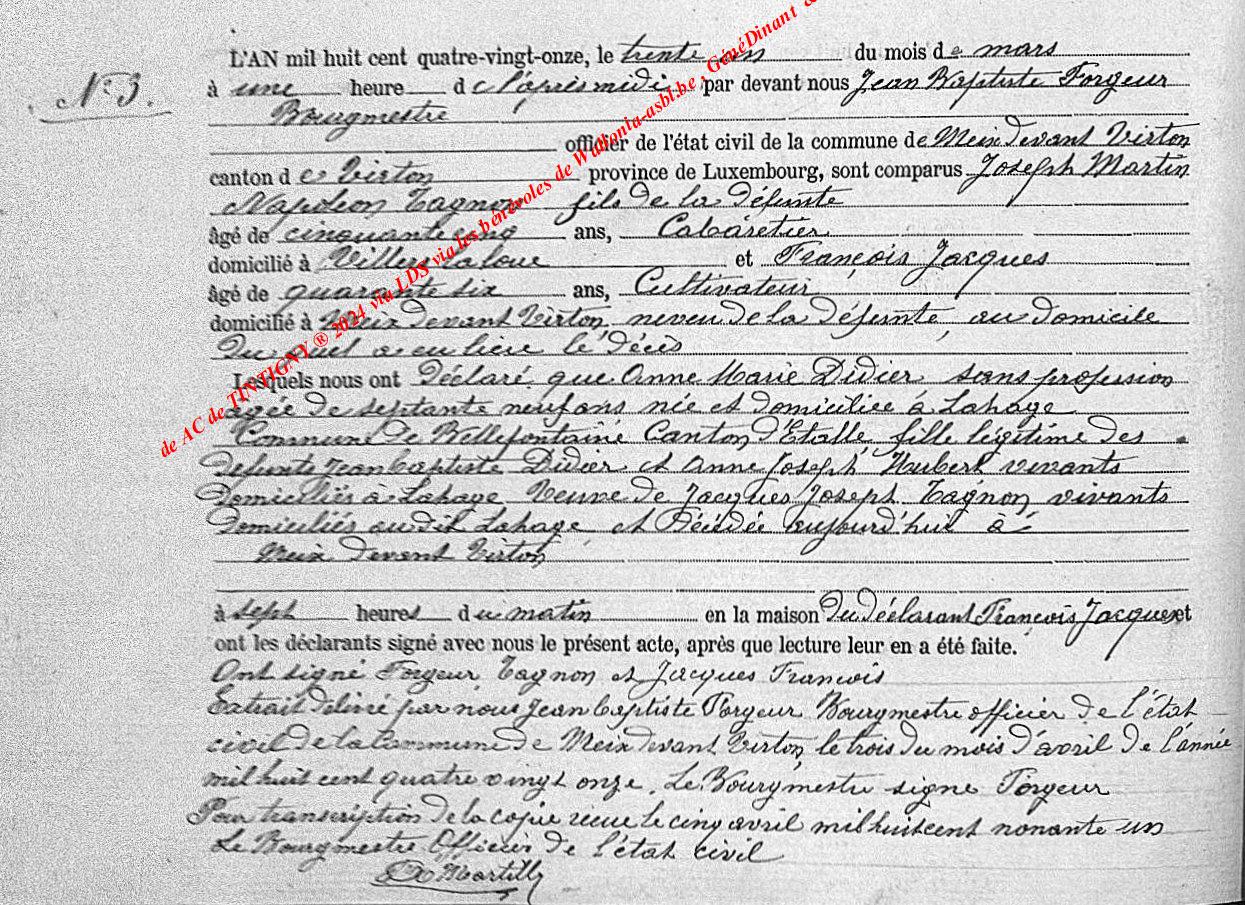 L'AN mil huit cent quatre-vingt-onze, le trente un du mois de mars
N° 3.
à une heure de l'après midi par devant nous Jean Baptiste Forgeur
Bourgmestre
officier de l'état civil de la commune de Meix devant Virton
canton de Virton province de Luxembourg, sont comparus Joseph Martin
Napoléon Tagnon fils de la défunte
âgé de cinquante cinq ans, Cabaretier
domicilié à Villers la loue et François Jacques
âgé de quarante six ans, Cultivateur
domicilié à Meix devant Virton, neveu de la défunte, au domicile
du quel a eu lieu le décès
Lesquels nous ont déclaré que Anne Marie Didier sans profession
agée de septante neuf ans née et domiciliée à Lahage
Commune de Bellefontaine Canton d'Etalle, fille légitime des
défunts Jean baptiste Didier et Anne Joseph Hubert vivants
domiciliés à Lahage Veuve de Jacques Joseph Tagnon vivants
domiciliés audit Lahage et décédée aujourd'hui à
Meix devant Virton
à sept heures du matin en la maison du déclarant François Jacques et
ont les déclarants signé avec nous le présent acte, après que lecture leur en a été faite.
Ont signé Forgeur, Tagnon et Jacques François
Extrait délivré par nous Jean baptiste Forgeur Bourgmestre officier de l'état
civil de la Commune de Meix devant Virton, le trois du mois d'avril de l'année
mil huit cent quatre vingt onze. Le Bourgmestre signé Forgeur
Pour transcription de la copie reçue le cinq avril mil huit cent nonante un
Le Bourgmestre Officier de l'état civil
de AC de TINTIGNY ® 2024 via LDS via les bénévoles de Wallonia-asbl.be, GénéDinant &